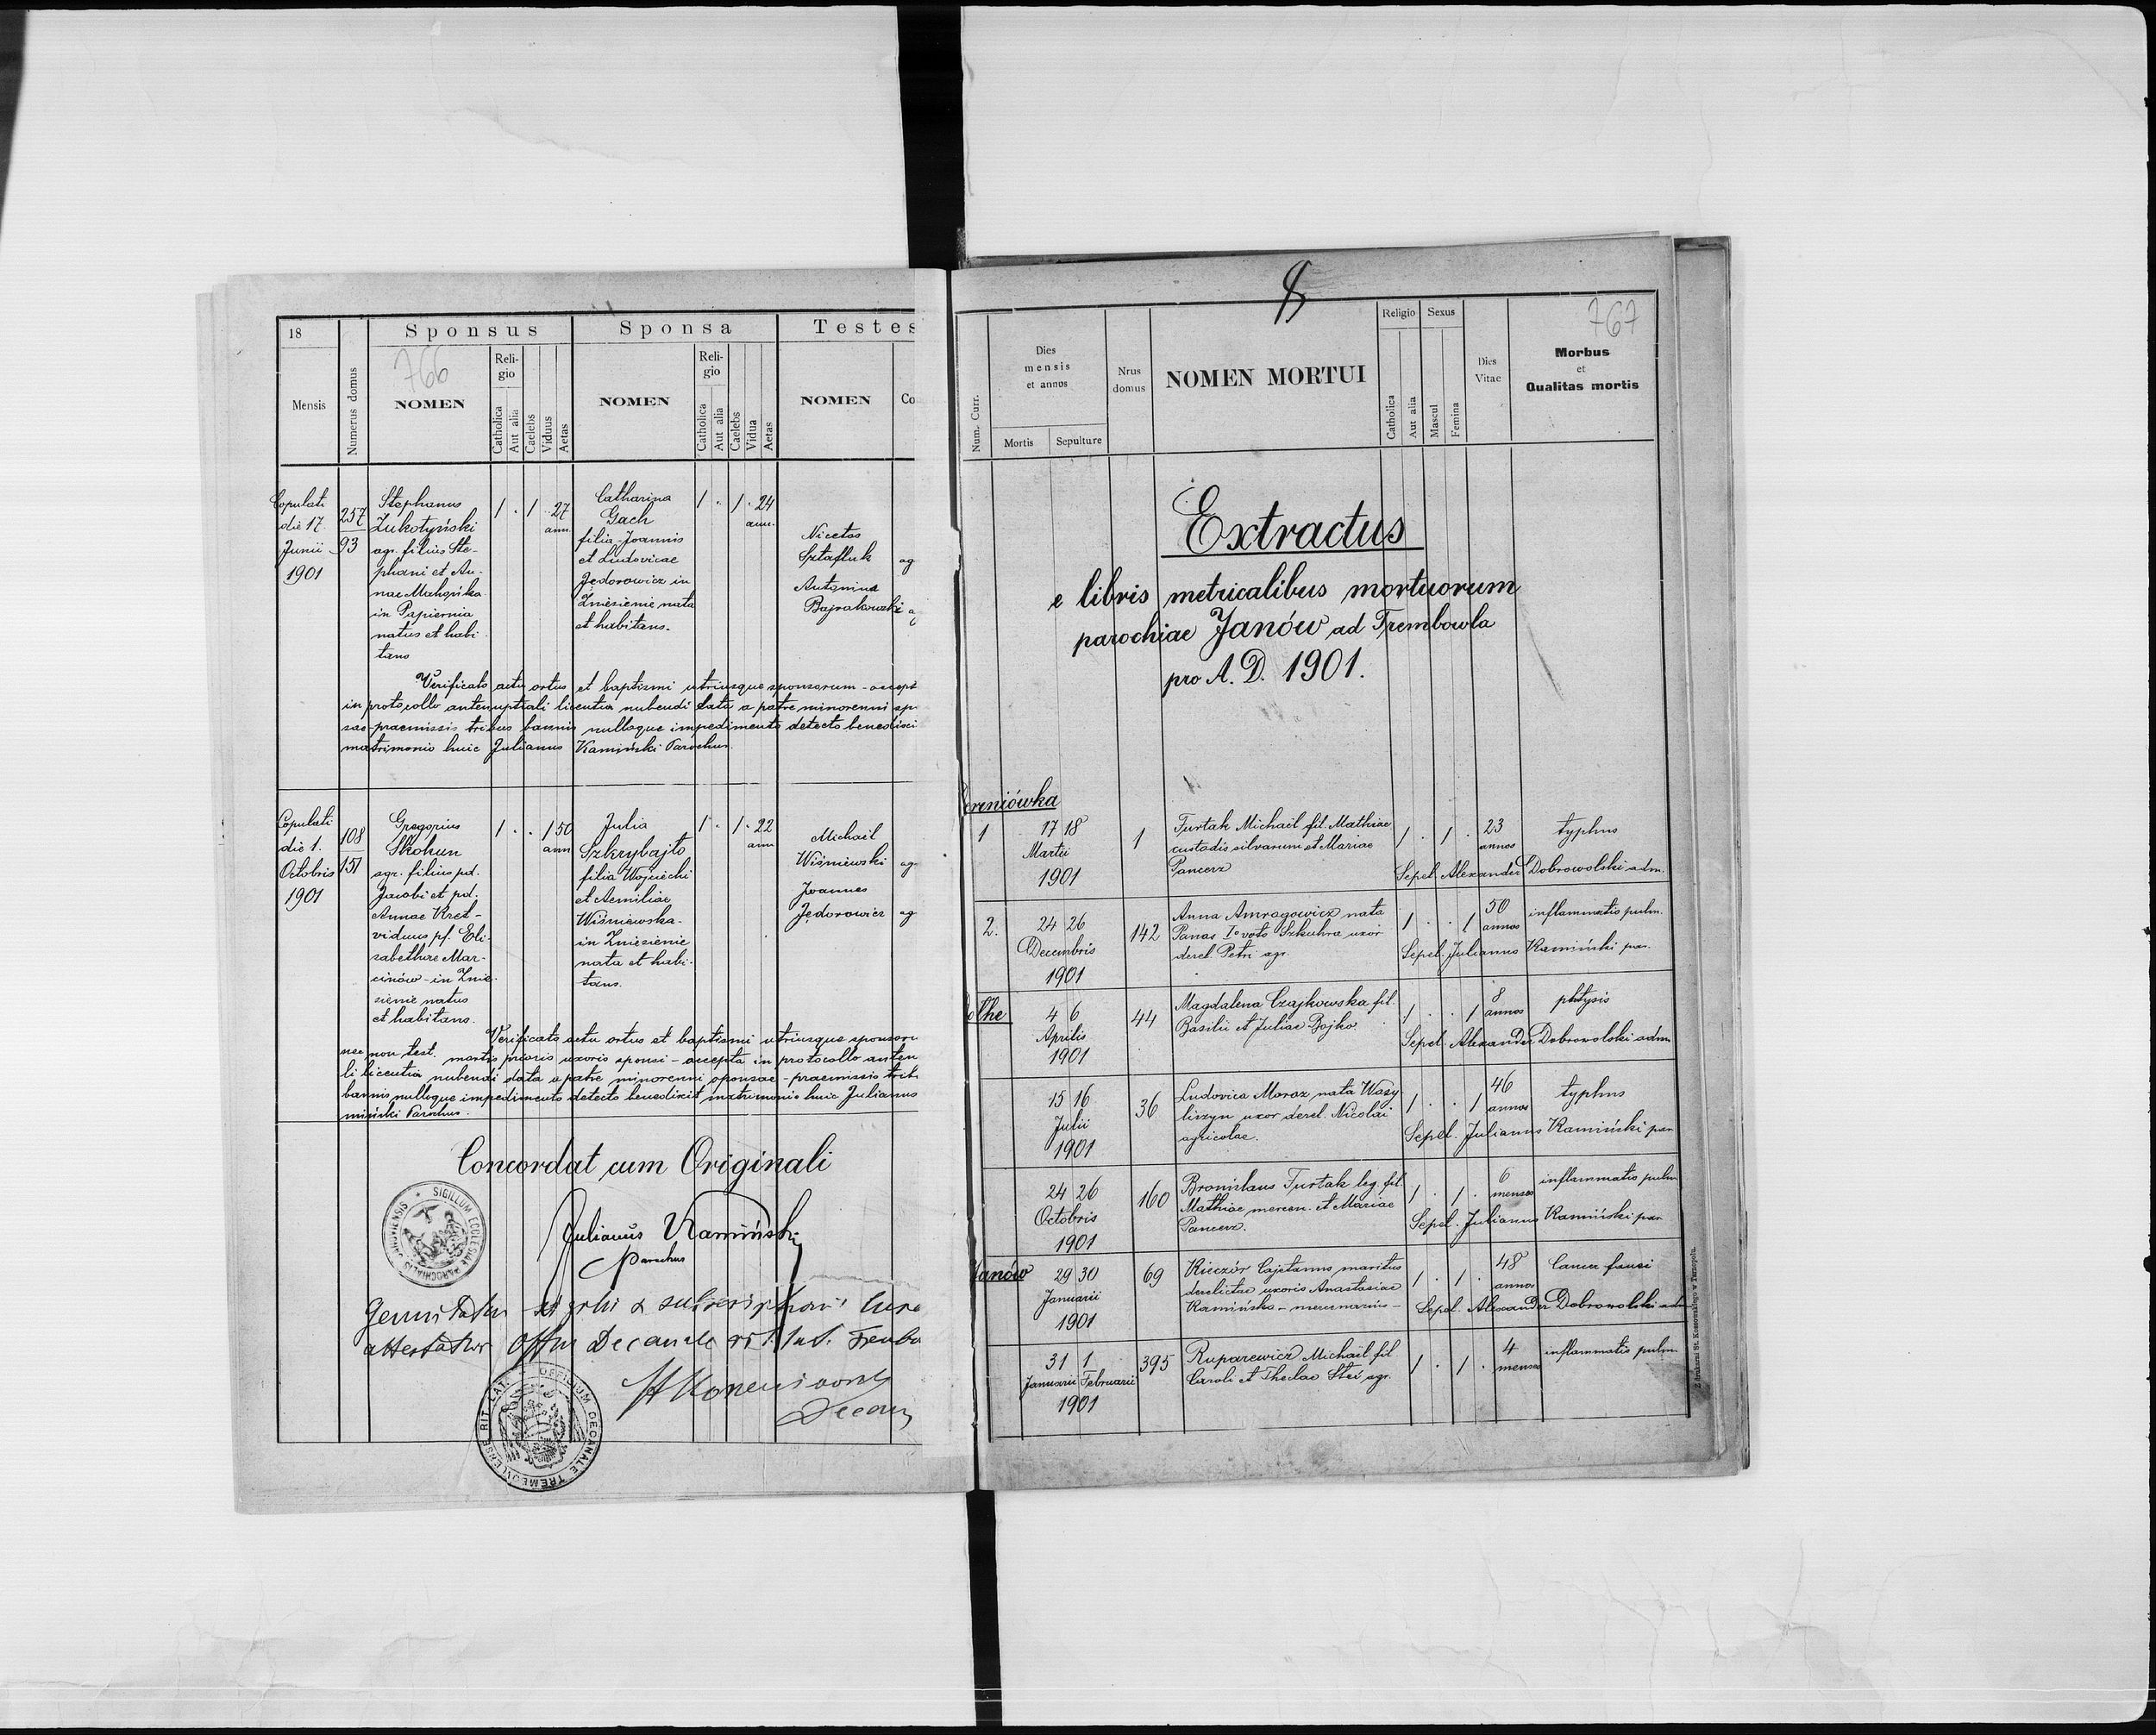 18
Sponsus
Sponsa
Testes
766
Mensis
Numerus domus
NOMEN
Reli-
gio
Catholica
Aut alia
Caelebs
Viduus
Aetas
NOMEN
Reli-
gio
Catholica
Aut alia
Caelebs
Vidua
Aetas
NOMEN
Co
Copulati
die 17.
Junii
1901
257
93
Stephanus
Żukotyński
agr. filius Ste-
phani et An-
nae
in Papiernia
natus et habi
tans
1 . 1 . 27
ann.
Catharina
Gach
filia Joannis
et Ludovicae
Jedorowicz in
Zniesienie nata
et habitans.
1 . 1 . 24
ann.
Nicetas
Sztafluk ag
Antonius
Bajrakowski a
Verificato actu ortus et baptismi utriusque sponsorum - accept
in protocollo antenuptiali licentia nubendi data a patre minorenni sp
sae - praemissis tribus bannis nulloque impedimento detecto benedixi
matrimonio huic Julianus Kamiński Parochus.
Copulati
die 1.
Octobris
1901
108
151
Gregorius
Skohun
agr. filius pd.
Jacobi et pd.
Annae Kret -
viduus pf. Eli-
sabethae Mar-
cinów - in Znie-
sienie natus
et habitans.
1 . . 1 50
ann
Julia
Szkrybajto
filia Wojciechi
et Aemiliae
Wiśniewska -
in Zniesienie
nata et habi-
tans.
1 . 1 . 22
ann
Michael
Wiśniewski ag.
Joannes
Jędorowicz ag
Verificato actu ortus et baptismi utriusque sponsoru
nec non test. mortis prioris uxoris sponsi - accepta in protocollo anten
li licentia nubendi data a patre minorenni sponsae - praemissis trib
bannis nulloque impedimento detecto benedixit matrimonio huic Julianus
miński Parochus.
Concordat cum Originali
SIGILLUM ECCLESIAE PAROCHIALIS JANOVIENSIS
Julianus Kamiński
Parochus
et subscriptionis
attestatur Offm Decanale rit. lat.
OFFICIUM DECANALE TREMBOVLENSE RIT. LAT.
Decan
8
767
Num. Curr.
Dies
mensis
et annos
Mortis
Sepulture
Nrus
domus
NOMEN MORTUI
Religio
Catholica
Aut alia
Sexus
Mascul
Femina
Dies
Vitae
Morbus
et
Qualitas mortis
Extractus
e libris metricalibus mortuorum
parochiae Janów ad Trembowla
pro A. D. 1901.
1
17 18
Martii
1901
1
Furtak Michael fil. Mathiae
custodis silvarum et Mariae
Pancerz
1 . 1 . 23
annos
typhus
Sepel. Alexander Dobrowolski adm.
2.
24 26
Decembris
1901
142
Anna Amrogowicz nata
Panas Io voto Szkuhra uxor
derel. Petri agr.
1 . . 1 50
annos
inflammatio pulm.
Sepel. Julianus Kamiński par.
olhe
4 6
Aprilis
1901
44
Magdalena Czajkowska fil.
Basilii et Juliae Bojko
1 . . 1 8
annos
phtysis
Sepel. Alexander Dobrowolski adm
15 16
Julii
1901
36
Ludovica Moroz nata Wasy
liszyn uxor derel. Nicolai
agricolae.
1 . . 1 46
annos
typhus
Sepel. Julianus Kamiński par
24 26
Octobris
1901
160
Bronislaus Furtak leg. fil.
Mathiae mercen. et Mariae
Pancerz.
1 . 1 . 6
menses
inflammatio pulm
Sepel. Julianus Kamiński par
Janów
29 30
Januarii
1901
69
Kieczór Cajetanus maritus
derelictae uxoris Anastasiae
Kamińska - mercenarius -
1 . 1 . 48
annos
Cancer fauci
Sepel. Alexander Dobrowolski adm
31 1
Januarii Februarii
1901
395
Ruparewicz Michael fil
Caroli et Theclae Steć agr.
1 . 1 . 4
menses
inflammatio pulm.
Z drukarni St. Kossowskiego w Tarnopolu.